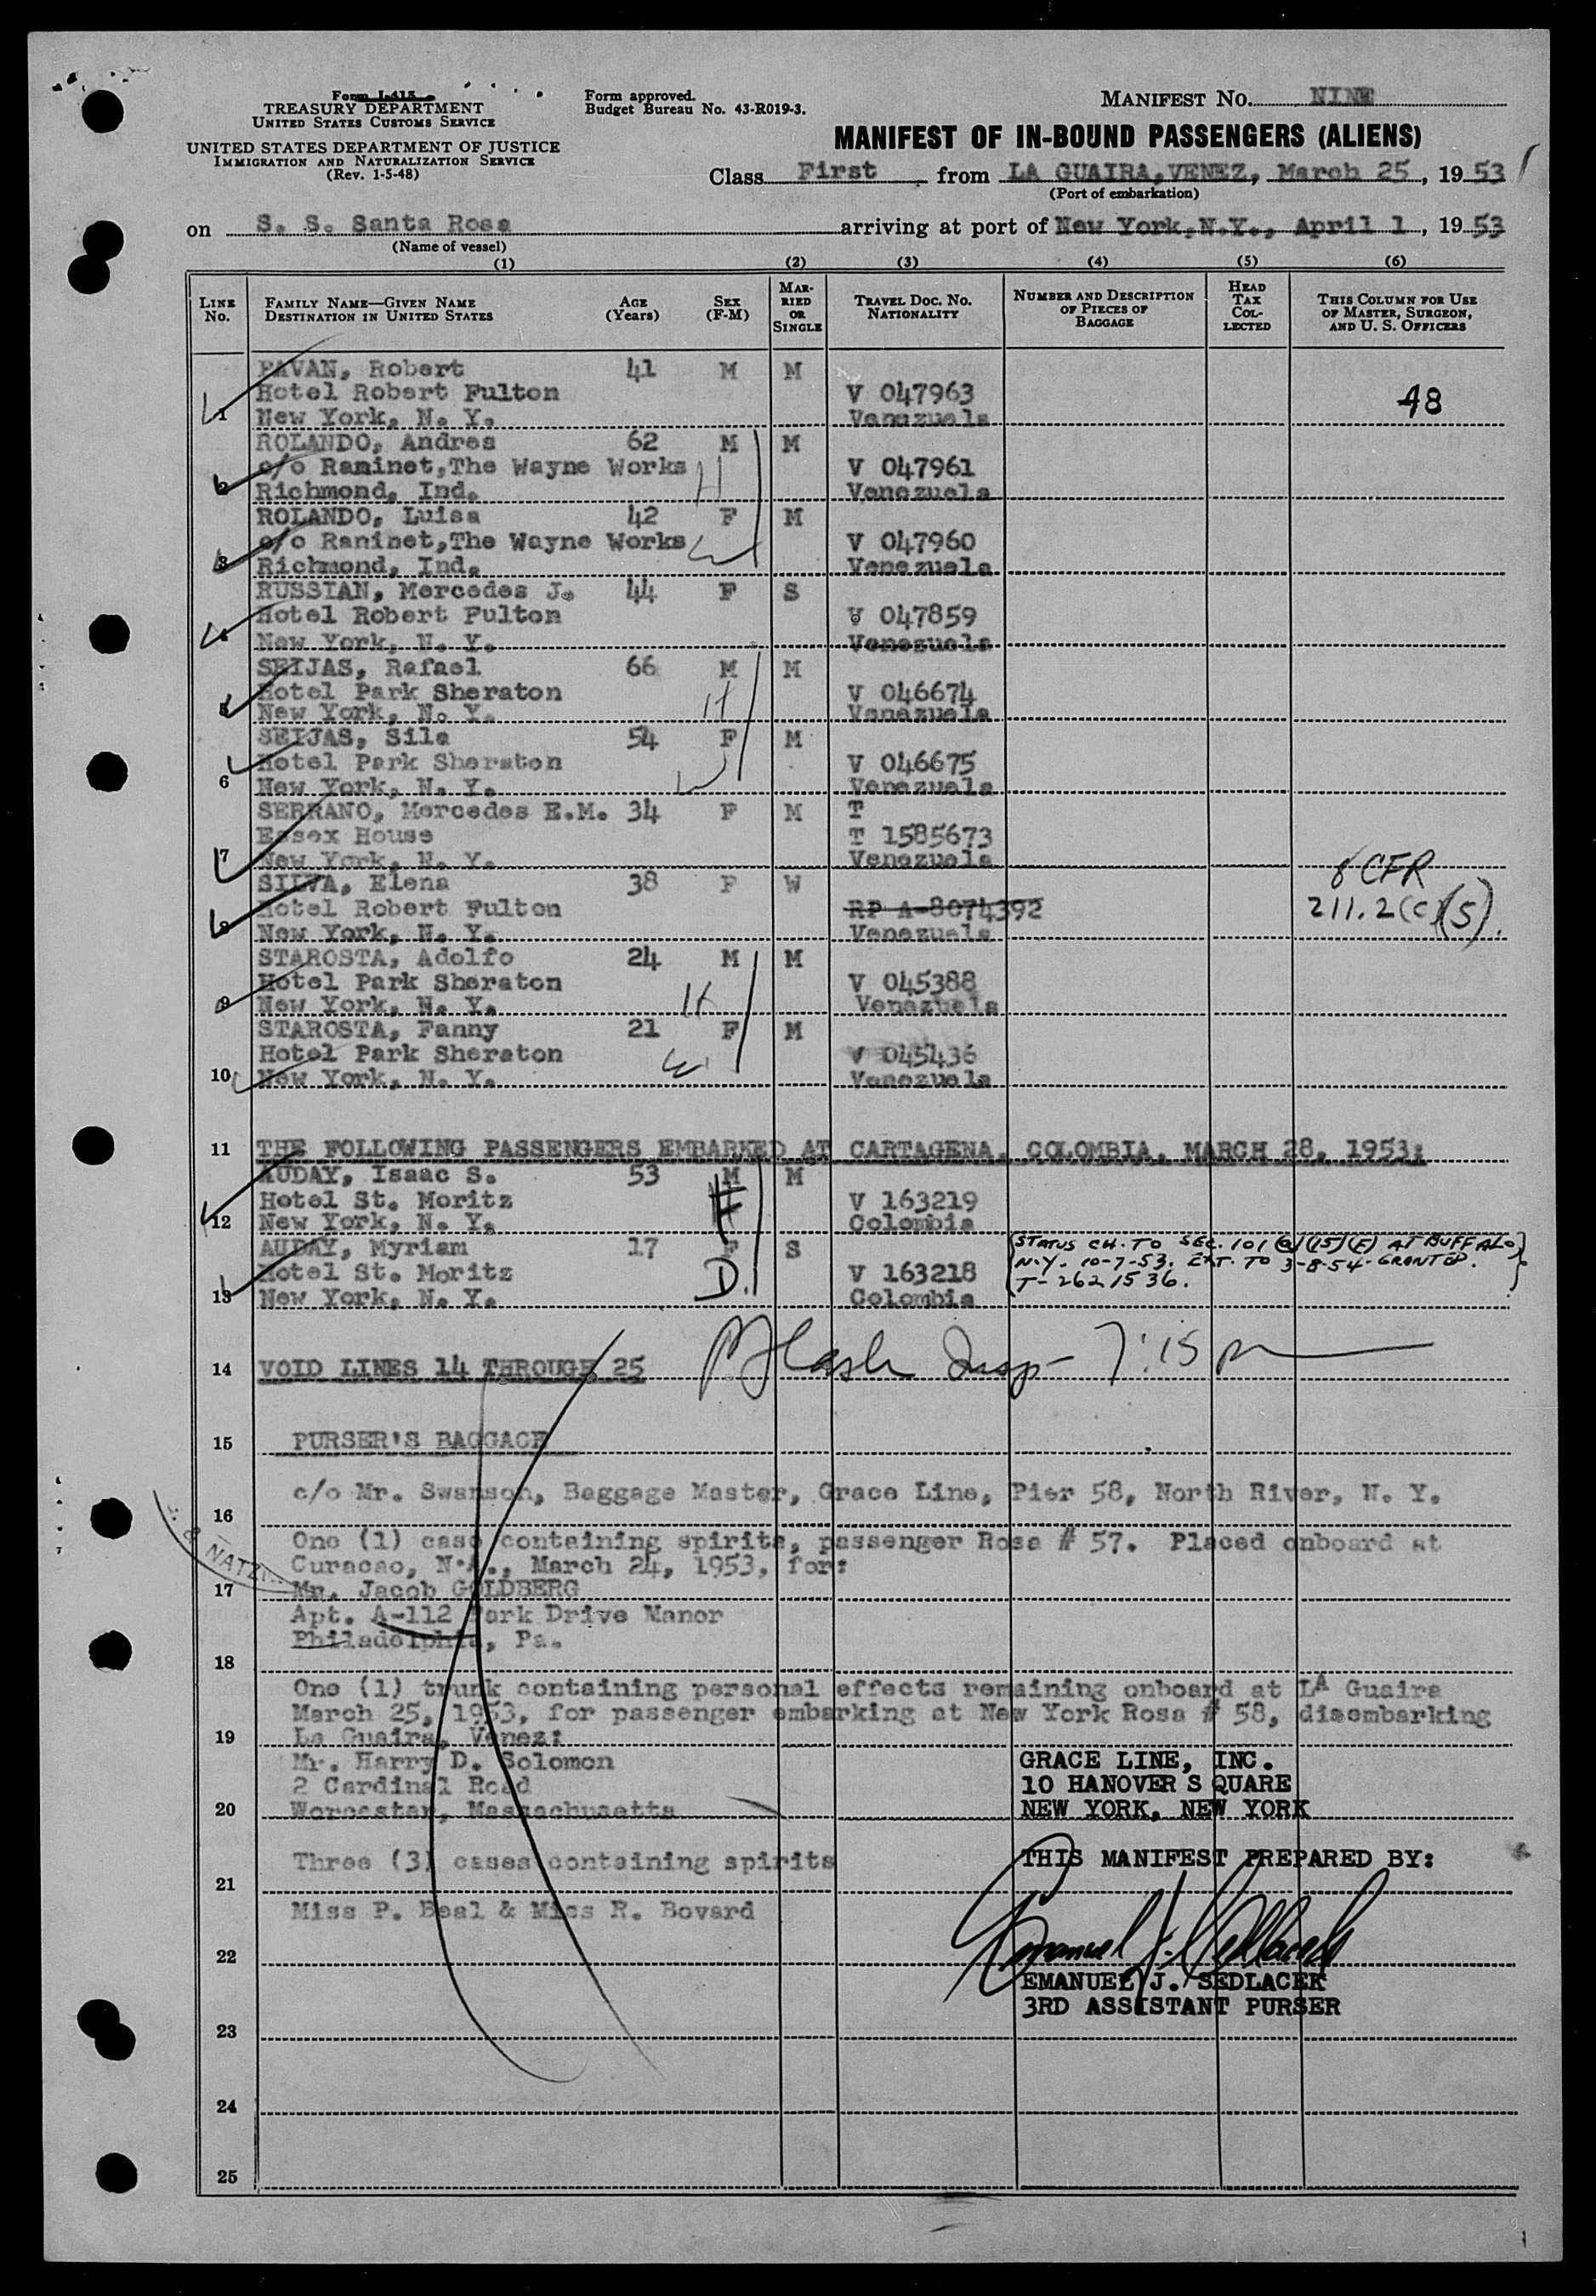 Form I-415
TREASURY DEPARTMENT
UNITED STATES CUSTOMS SERVICE
UNITED STATES DEPARTMENT OF JUSTICE
IMMIGRATION AND NATURALIZATION SERVICE
(Rev. 1-5-48)
Form approved.
Budget Bureau No. 43-R019-3.
MANIFEST No. NINE
MANIFEST OF IN-BOUND PASSENGERS (ALIENS)
Class First from LA GUAIRA, VENEZ, March 25, 1953
(Port of embarkation)
on S. S. Santa Rosa arriving at port of New York, N.Y., April 1, 1953
(Name of vessel)
(1) (2) (3) (4) (5) (6)
LINE No. FAMILY NAME—GIVEN NAME DESTINATION IN UNITED STATES AGE (Years) SEX (F-M) MARRIED OR SINGLE TRAVEL DOC. No. NATIONALITY NUMBER AND DESCRIPTION OF PIECES OF BAGGAGE HEAD TAX COLLECTED THIS COLUMN FOR USE OF MASTER, SURGEON, AND U. S. OFFICERS
PAVAN, Robert 41 M M
Hotel Robert Fulton V 047963 48
1 New York, N. Y. Venezuela
ROLANDO, Andres 62 M M
c/o Raminet, The Wayne Works H V 047961
2 Richmond, Ind. Venezuela
ROLANDO, Luisa 42 F M
c/o Raninet, The Wayne Works W V 047960
3 Richmond, Ind. Venezuela
RUSSIAN, Mercedes J. 44 F S
Hotel Robert Fulton V 047859
4 New York, N. Y. Venezuela
SEIJAS, Rafael 66 M M
Hotel Park Sheraton V 046674
5 New York, N. Y. H Venezuela
SEIJAS, Sila 54 F M
Hotel Park Sheraton V 046675
6 New York, N. Y. W Venezuela
SERRANO, Mercedes E.M. 34 F M T
Essex House T 1585673
7 New York, N. Y. Venezuela
SILVA, Elena 38 F W 8 CFR
Hotel Robert Fulton RP A-8074392 211.2(c)(5).
8 New York, N. Y. Venezuela
STAROSTA, Adolfo 24 M M
Hotel Park Sheraton V 045388
9 New York, N. Y. H Venezuela
STAROSTA, Fanny 21 F M
Hotel Park Sheraton W V 045436
10 New York, N. Y. Venezuela
11 THE FOLLOWING PASSENGERS EMBARKED AT CARTAGENA, COLOMBIA, MARCH 28, 1953:
AUDAY, Isaac S. 53 M M
Hotel St. Moritz F V 163219
12 New York, N. Y. Colombia
AUDAY, Myriam 17 F S STATUS CH. TO SEC. 101(a)(15)(F) AT BUFFALO
Hotel St. Moritz D. V 163218 N.Y. 10-7-53. EXT. TO 3-8-54 GRANTED.
13 New York, N. Y. Colombia T-2621536.
14 VOID LINES 14 THROUGH 25 Insp 7:15 p
15 PURSER'S BAGGAGE
16 c/o Mr. Swanson, Baggage Master, Grace Line, Pier 58, North River, N. Y.
One (1) case containing spirits, passenger Rosa # 57. Placed onboard at
Curacao, N.A., March 24, 1953, for:
& NATZ
17 Mr. Jacob GOLDBERG
Apt. A-112 Park Drive Manor
Philadelphia, Pa.
18
One (1) trunk containing personal effects remaining onboard at LA Guaira
March 25, 1953, for passenger embarking at New York Rosa # 58, disembarking
19 La Guaira, Venez:
Mr. Harry D. Solomon GRACE LINE, INC.
2 Cardinal Road 10 HANOVER SQUARE
20 Worcester, Massachusetts NEW YORK, NEW YORK
Three (3) cases containing spirits THIS MANIFEST PREPARED BY:
21
Miss P. Beal & Miss R. Bovard
22 Emanuel J. Sedlacek
EMANUEL J. SEDLACEK
3RD ASSISTANT PURSER
23
24
25